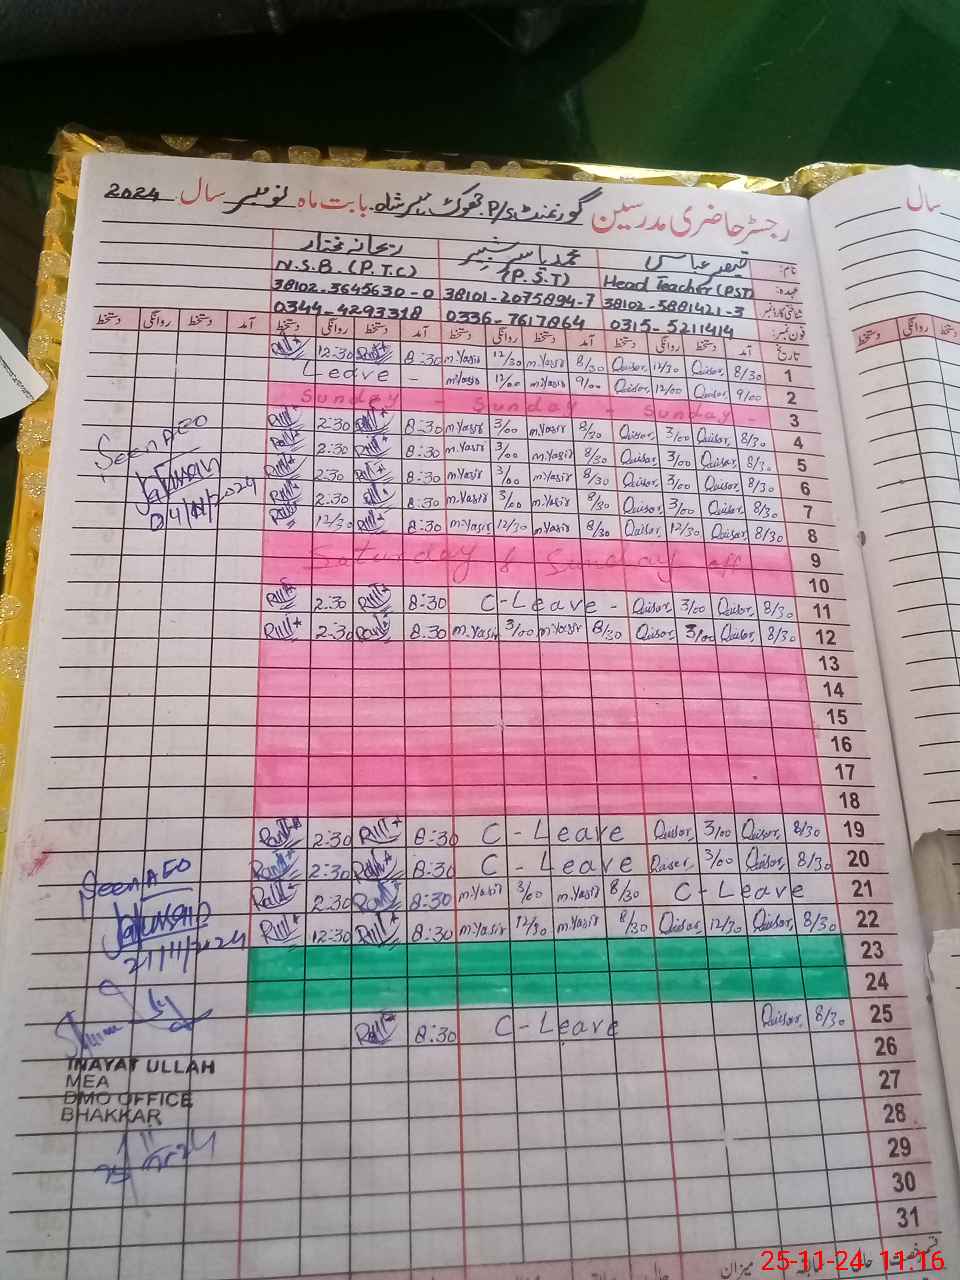 رجسٹر حاضری مدرسین گورنمنٹ P/S ڈھوک پیر شاہ بابت ماہ نومبر سال 2024
سال
نام: قیصر عباس محمد یاسر شبیر ریحانہ مختار
عہدہ: Head Teacher (PST) (P.S.T) N.S.B. (P.T.C)
شناختی کارڈ نمبر 38102-5881421-3 38101-2075894-7 38102-3645630-0
فون نمبر: 0315-5211414 0336-7617864 0344-4293318
تاریخ آمد دستخط روانگی دستخط آمد دستخط روانگی دستخط آمد دستخط روانگی دستخط
1 8/30 Qaisar, 12/30 Qaisar, 8/30 m.Yasir 12/30 m.Yasir 8:30 12:30
2 9/00 Qaisar, 12/00 Qaisar, 9/00 m.Yasir 12/00 m.Yasir Leave -
3 Sunday - Sunday - Sunday -
4 8/30 Qaisar, 3/00 Qaisar, 8/30 m.Yasir 3/00 m.Yasir 8:30 2:30
5 8/30 Qaisar, 3/00 Qaisar, 8/30 m.Yasir 3/00 m.Yasir 8:30 2:30
6 8/30 Qaisar, 3/00 Qaisar, 8/30 m.Yasir 3/00 m.Yasir 8:30 2:30
7 8/30 Qaisar, 3/00 Qaisar, 8/30 m.Yasir 3/00 m.Yasir 8:30 2:30
8 8/30 Qaisar, 12/30 Qaisar, 8/30 m.Yasir 12/30 m.Yasir 8:30 12/30
9 Saturday & Sunday off
10
11 8/30 Qaisar, 3/00 Qaisar, C-Leave - 8:30 2:30
12 8/30 Qaisar, 3/00 Qaisar, 8/30 m.Yasir 3/00 m.Yasir 8:30 2:30
13
14
15
16
17
18
19 8/30 Qaisar, 3/00 Qaisar, C-Leave 8:30 2:30
20 8/30 Qaisar, 3/00 Qaisar, C-Leave 8:30 2:30
21 C-Leave 8/30 m.Yasir 3/00 m.Yasir 8:30 2:30
22 8/30 Qaisar, 12/30 Qaisar, 8/30 m.Yasir 12/30 m.Yasir 8:30 12:30
23
24
25 8/30 Qaisar, C-Leave 8:30
26
27
28
29
30
31
Seen AEO
04/11/2024
Seen AEO
21/11/2024
INAYAT ULLAH
MEA
DMO OFFICE
BHAKKAR
دستخط روانگی دستخط
میزان سابقہ حال
25-11-24 11:16